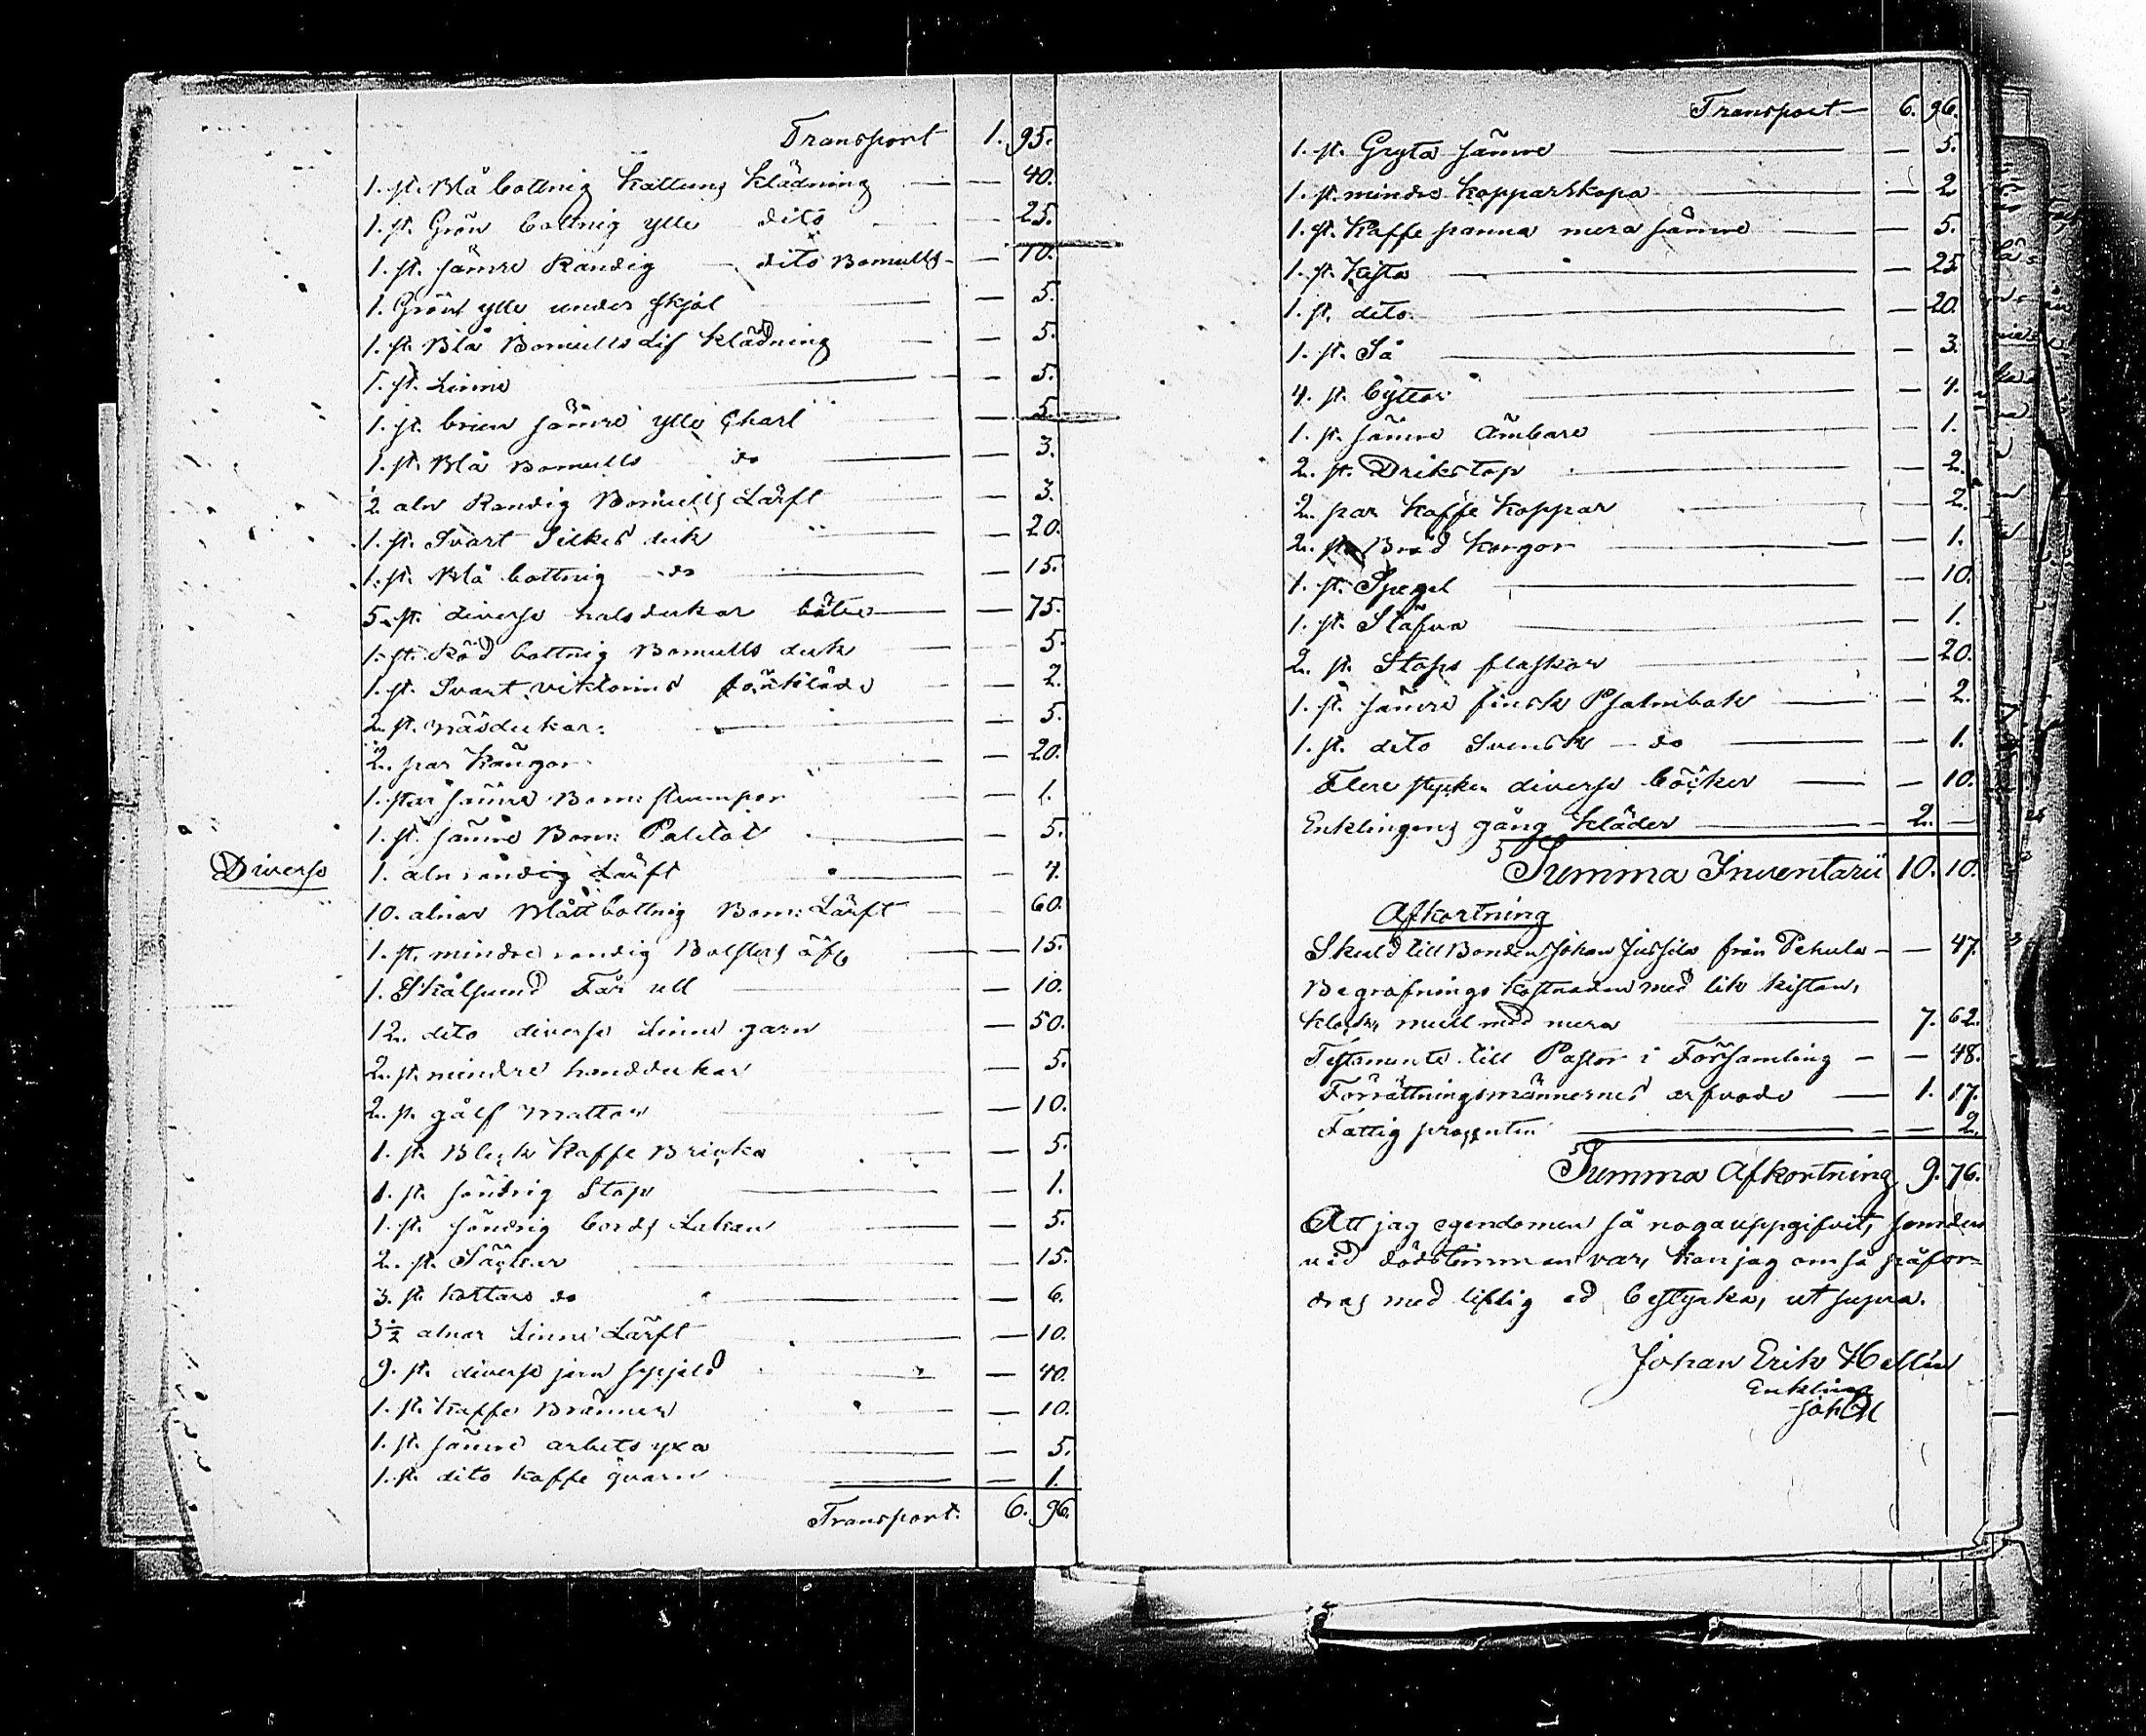 Transport 1. 95.
1. st. Blå bottnig Kattuns Klädning — 40.
1. st. Grön bottnig ylle dito — 25.
1. st. sämre Randig — dito Bomulls — 10.
1. Grönt ylle under kjol — 5.
1. st. Blå Bomulls lif klädning — 5.
1. st. Linne — 5.
1. st. brun sämre ylle Sharl — 5.
1. st. Blå Bomulls do — 3.
2 aln Randig Bomulls Lärft — 3.
1. st. Svart Silkes duk — 20.
1. st. Blå bottnig do — 15.
5. st. diverse halsdukar bättre — 75.
1. st. Röd bottnig Bomulls duk — 5.
1. st. Svart förkläde — 2.
2. st. näsdukar: — 5.
2. par Kängor — 20.
1. par sämre Bom: strumpor — 1.
1. st. sämre Bom: Paletot — 5.
Diverse 1. aln randig Lärft — 4.
10. alnar Blått bottnig Bom: Lärft — 60.
1. st. mindre randig Bolsters — 15.
1. Skålpund Får ull — 10.
12. dito diverse Linne garn — 50.
2. st. mindre handdukar — 5.
2. st. gålf mattor — 10.
1. st. Bleck Kaffe Bricka — 5.
1. st. söndrig Stop — 1.
1. st. söndrig bords Lakan — 5.
2. st. Säckar — 15.
3. st. kottare do — 6.
3½ alnar Linne Lärft — 10.
9. st. diverse jern spjeld — 40.
1. st. Kaffe Brännare — 10.
1. st. sämre arbets yxa — 5.
1. st. dito kaffe qvarn — 1.
Transport. 6. 96.
Transport — 6. 96.
1. st. Gryta sämre — 5.
1. st. mindre Kopparskopa — 2
1. st. Kaffe panna mera sämre — 5.
1. st. Kista — 25
1. st. dito — 20.
1. st. Så — 3.
4. st. byttor — 4.
1. st. sämre Ämbare — 1.
2. st. Drikstop — 2.
2. par Kaffe Koppar — 2.
2. st. Bröd Korgor — 1.
1. st. Spegel — 10.
1. st. Stäfva — 1.
2. st. Stops flaskor — 20.
1. st. sämre finsk Psalmbok — 2.
1. st. dito Svensk — do — 1.
Flere stycken diverse böcker — 10.
Enklingens gång kläder — 2. —
Summa Inventarii 10. 10.
Afkortning
Skuld till Bonden Johan Jussila från Pekula — 47.
Begrafnings kostnaden med lik kistan,
klock, mull med mera — 7. 62.
Testamente till Pastor i Församling — 48.
Förrättningsmännernes arfvode — 1. 17.
Fattig procenten — 2.
Summa Afkortning 9. 76.
Att jag egendomen så noga uppgifvit, som den
vid dödstimman var, kan jag om så påfor=
dras med liflig ed bestyrka, ut supra.
Johan Erik Hellin
Enkling